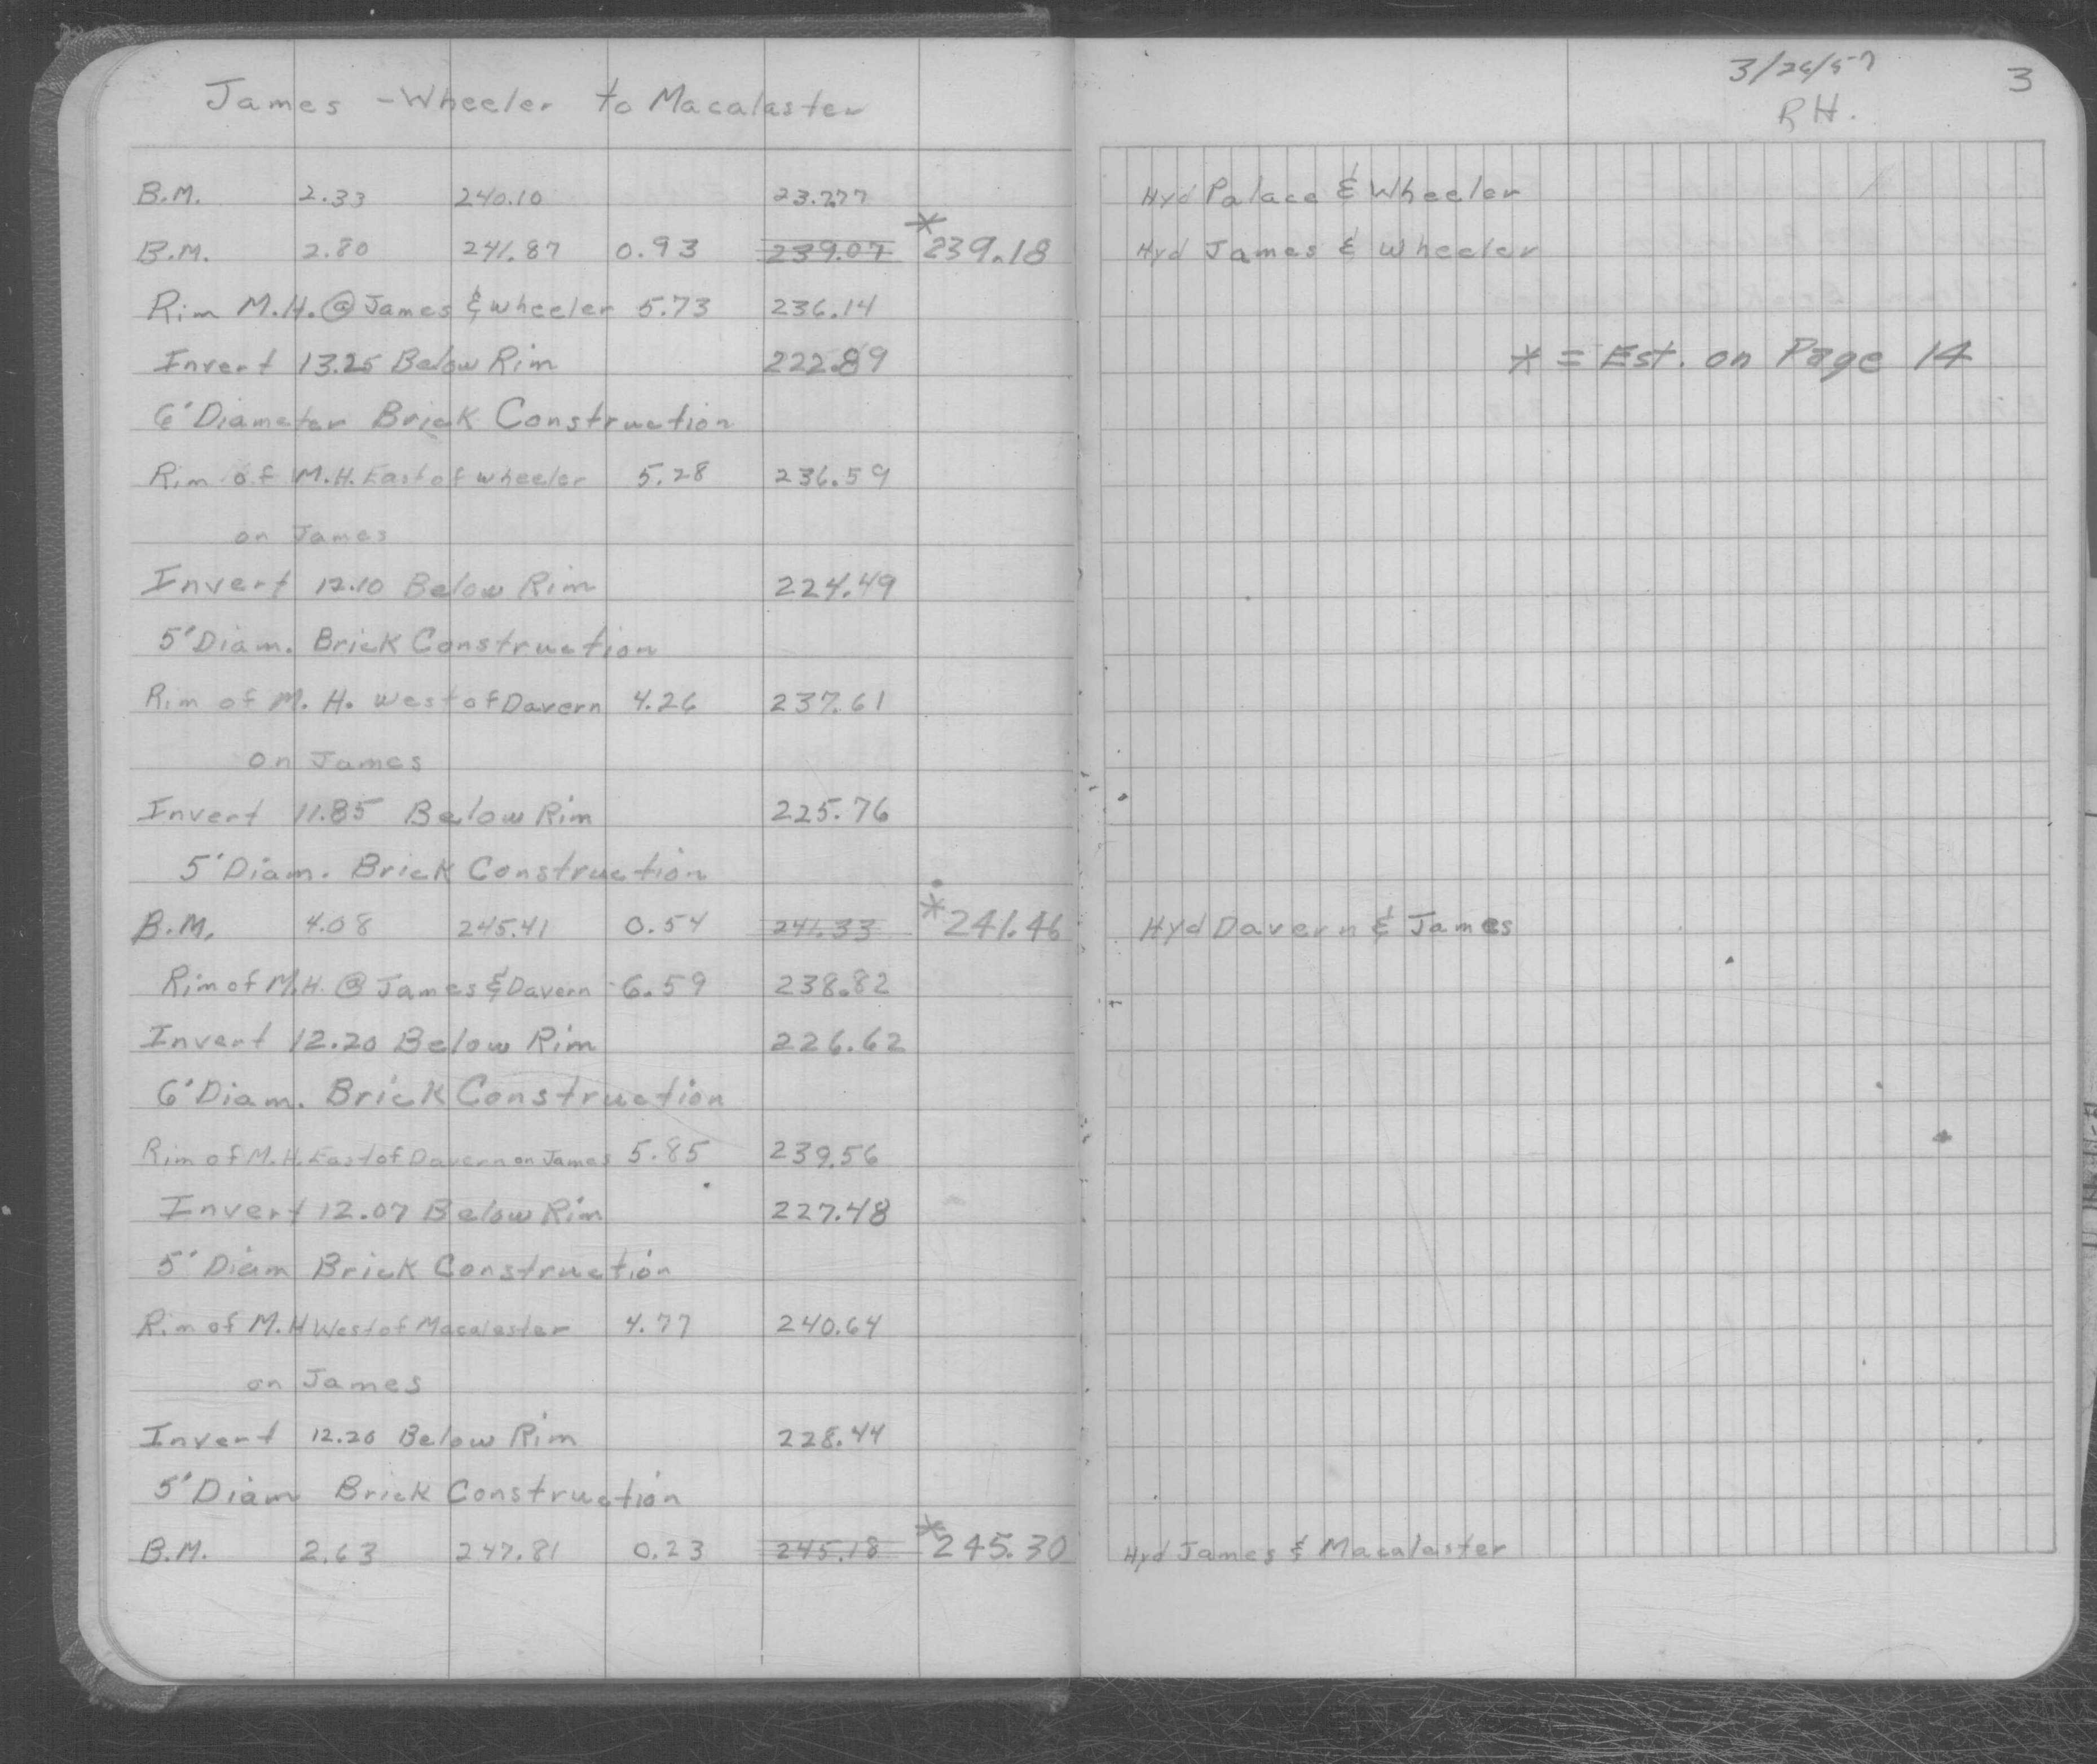 James - Wheeler to Macalaster
B.M. 2.33 240.10 237.77
B.M. 2.80 241.87 0.93 239.07 *239.18
Rim M.H. @ James & Wheeler 5.73 236.14
Invert 13.25 Below Rim 222.89
6' Diameter Brick Construction
Rim of M.H. East of Wheeler 5.28 236.59
on James
Invert 12.10 Below Rim 224.49
5' Diam. Brick Construction
Rim of M. H. West of Davern 4.26 237.61
on James
Invert 11.85 Below Rim 225.76
5' Diam. Brick Construction
B.M. 4.08 245.41 0.54 241.33 *241.46
Rim of M.H. @ James & Davern 6.59 238.82
Invert 12.20 Below Rim 226.62
6' Diam. Brick Construction
Rim of M.H. East of Davern on James 5.85 239.56
Invert 12.07 Below Rim 227.48
5' Diam Brick Construction
Rim of M.H West of Macalester 4.77 240.64
on James
Invert 12.20 Below Rim 228.44
5' Diam Brick Construction
B.M. 2.63 247.81 0.23 245.18 *245.30
3/26/57 3
RH.
Hyd Palace & Wheeler
Hyd James & Wheeler
* = Est. on Page 14
Hyd Davern & James
Hyd James & Macalaster